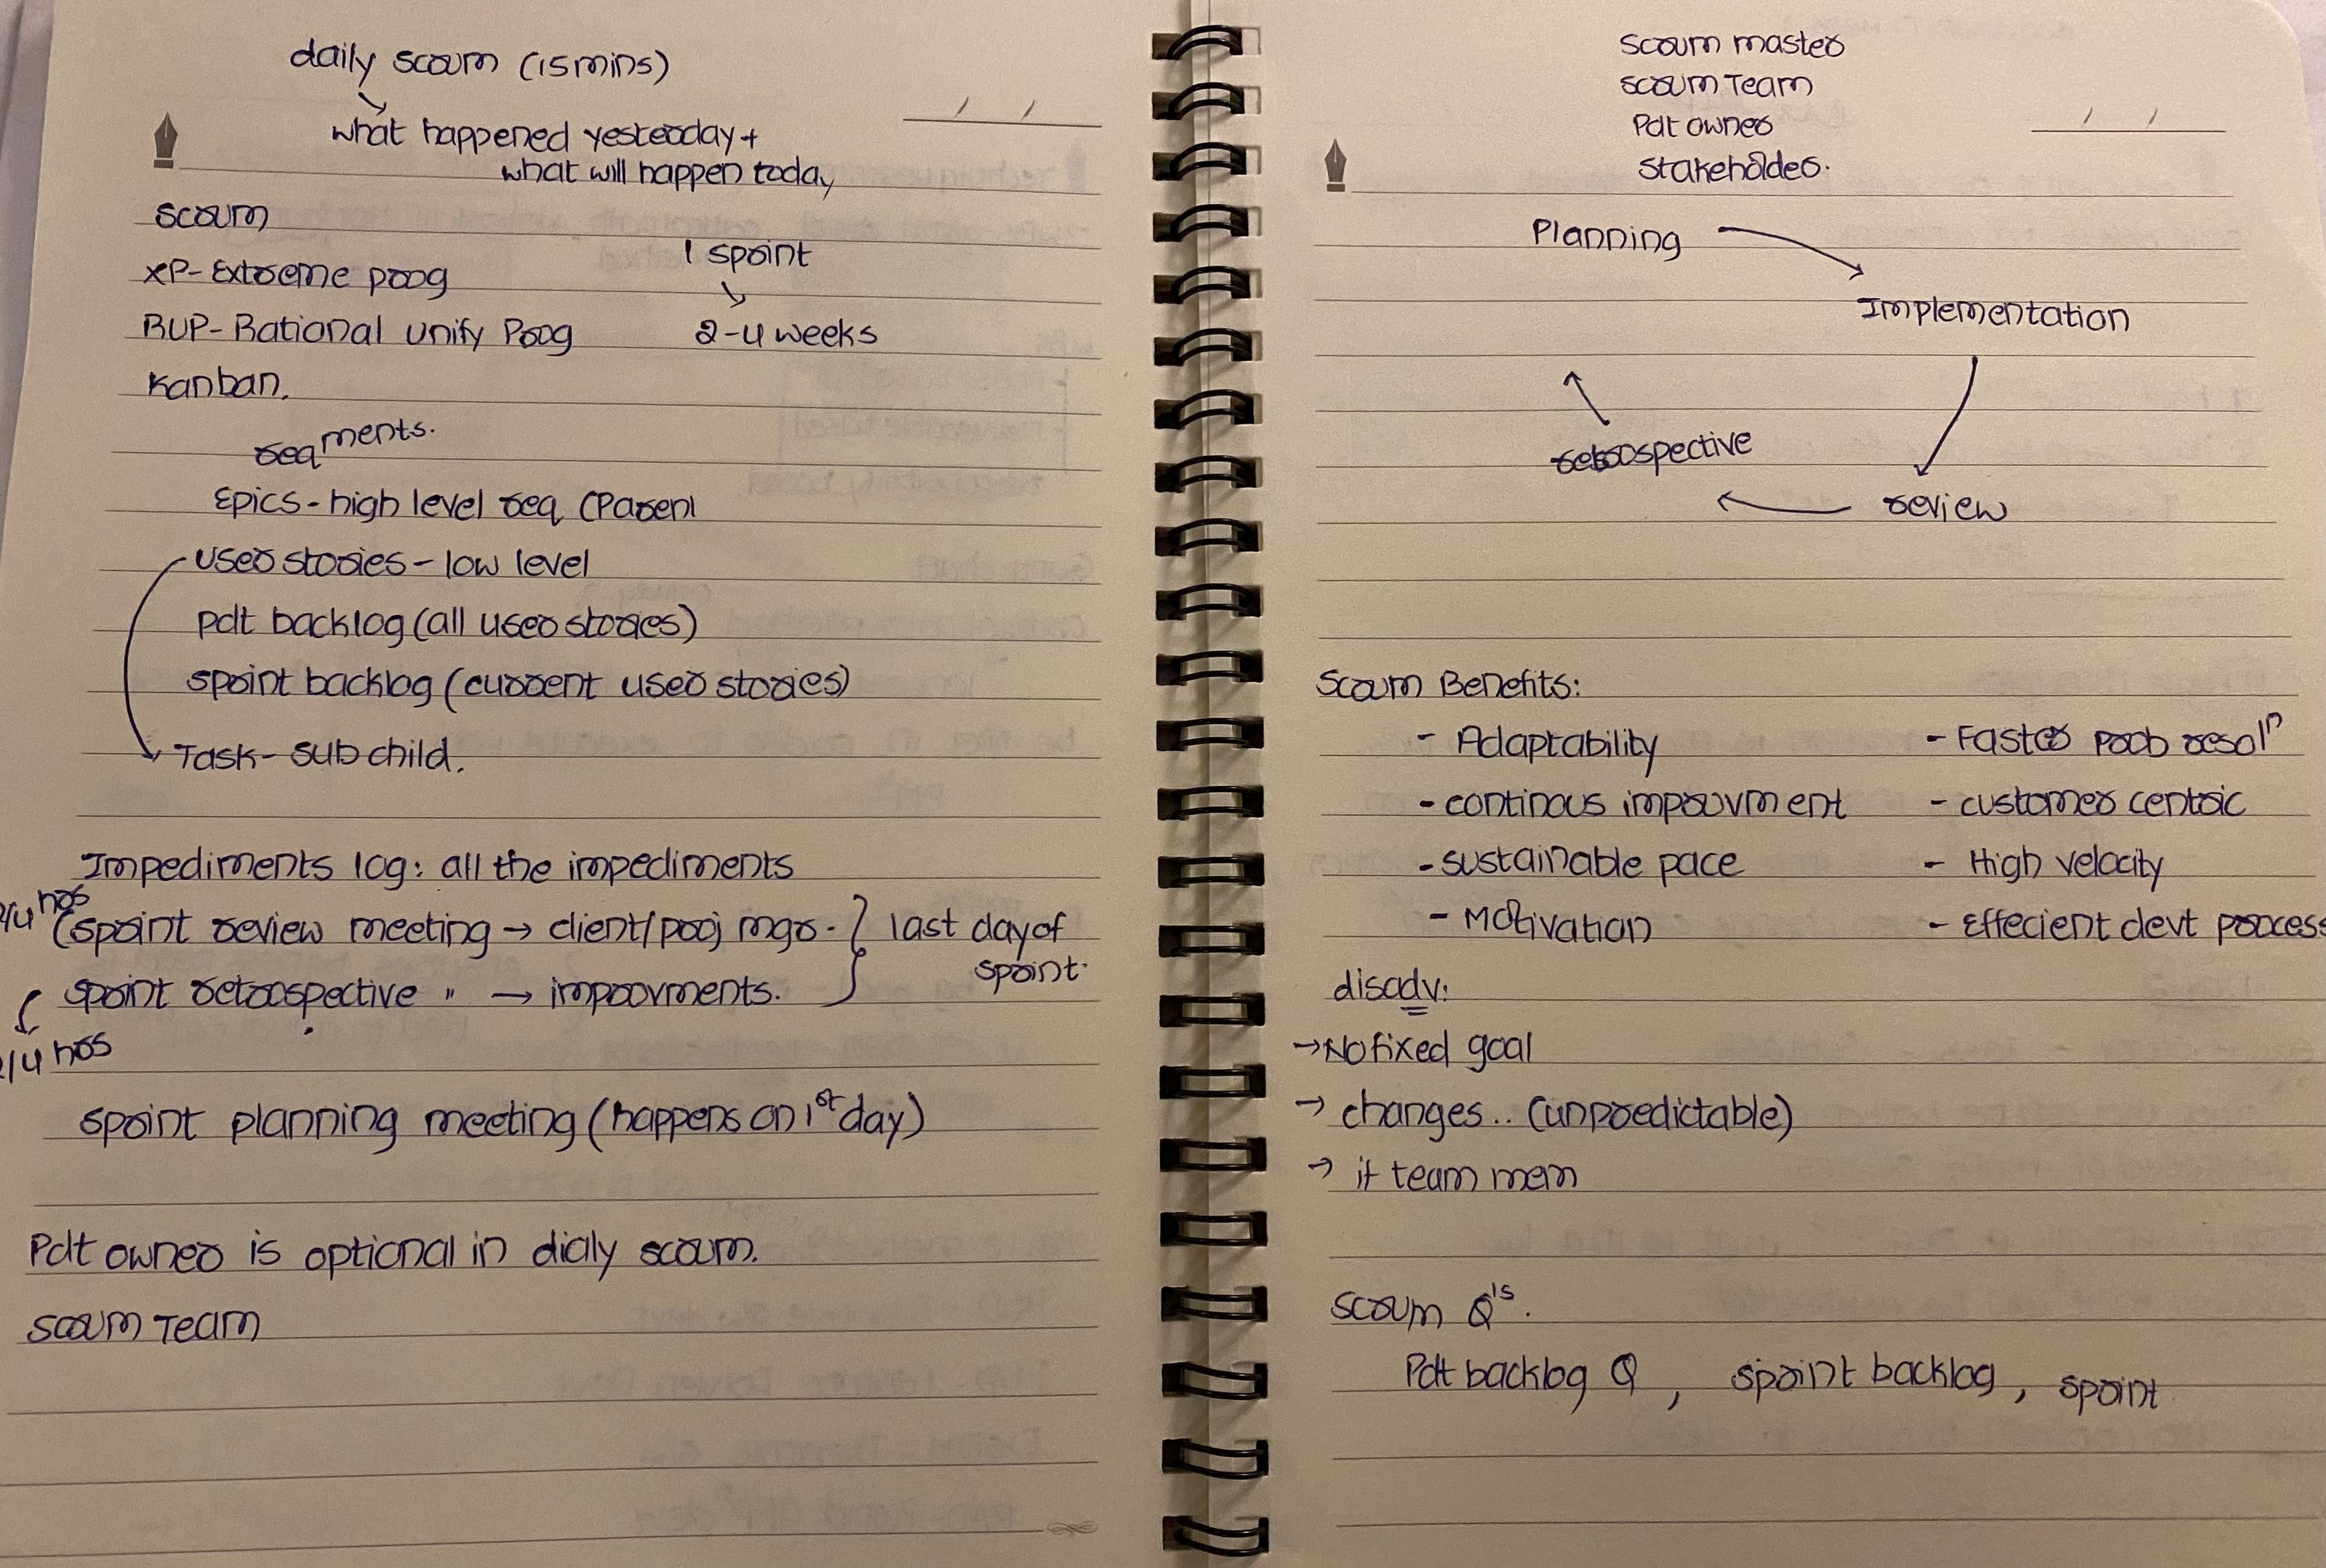 daily scrum (15mins)
what happened yesterday +
what will happen today
scrum
XP- Extreme prog
1 sprint
RUP- Rational unify Prog
2-4 weeks
Kanban.
reqments.
Epics - high level req (Paren
user stories - low level
Pdt backlog (all user stories)
sprint backlog (current user stories)
Task - sub child.
Impediments log: all the impediments
2/4 hrs
(sprint review meeting → client/proj mgr. } last day of
sprint.
sprint retrospective " → improvments.
2/4 hrs
sprint planning meeting (happens on 1st day)
Pdt owner is optional in dialy scrum.
scrum Team
scrum master
scrum Team
Pdt owner
Stakeholder.
Planning
Implementation
retrospective
review
Scrum Benefits:
- Adaptability - Faster prob resoln
- continous improvment - customer centric
- sustainable pace - High velocity
- Motivation - Effecient devt process
disadv:
→ No fixed goal
→ changes.. (unpredictable)
→ if team mem
scrum Q's.
Pdt backlog Q , sprint backlog , sprint